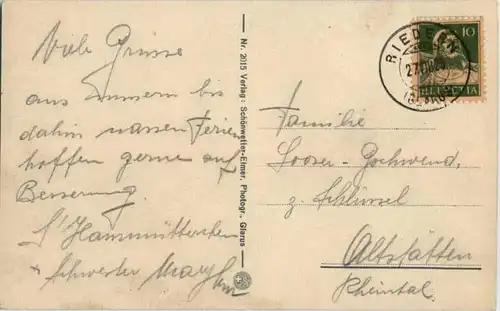 Viele Grüsse
aus immern bis
dahin nassen Ferien
hoffen gerne auf
Besserung.
s'Hausmütterchen
+ Schwester Mary
Nr. 2015 Verlag: Schönwetter-Elmer, Photogr., Glarus
RIEDERN
10
HELVETIA
(GLARUS)
Familie
Looser-Gschwend,
z. Schlüssel
Altstätten
Rheintal.